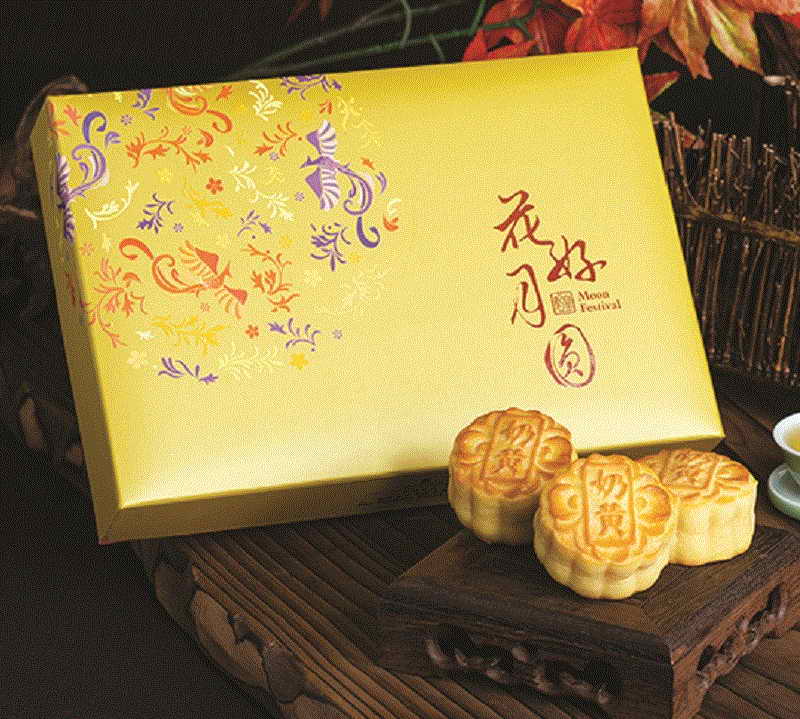 花好
月圓
Moon
Festival
奶黄
奶黄